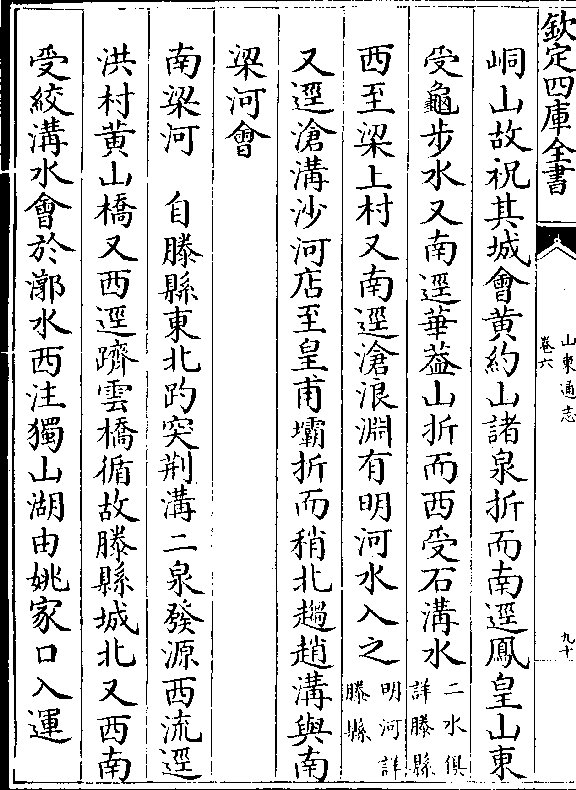 欽定四庫全書
山東通志
卷六
九十
峒山故祝其城會黄約山諸泉折而南逕鳳皇山東
受龜步水又南逕華葢山折而西受石溝水二水俱詳滕縣
西至梁上村又南逕滄浪淵有明河水入之明河詳滕縣
又逕滄溝沙河店至皇甫壩折而稍北趨趙溝與南
梁河會
南梁河　自滕縣東北趵突荆溝二泉發源西流逕
洪村黄山橋又西逕躋雲橋循故滕縣城北又西南
受絞溝水會於漷水西注獨山湖由姚家口入運